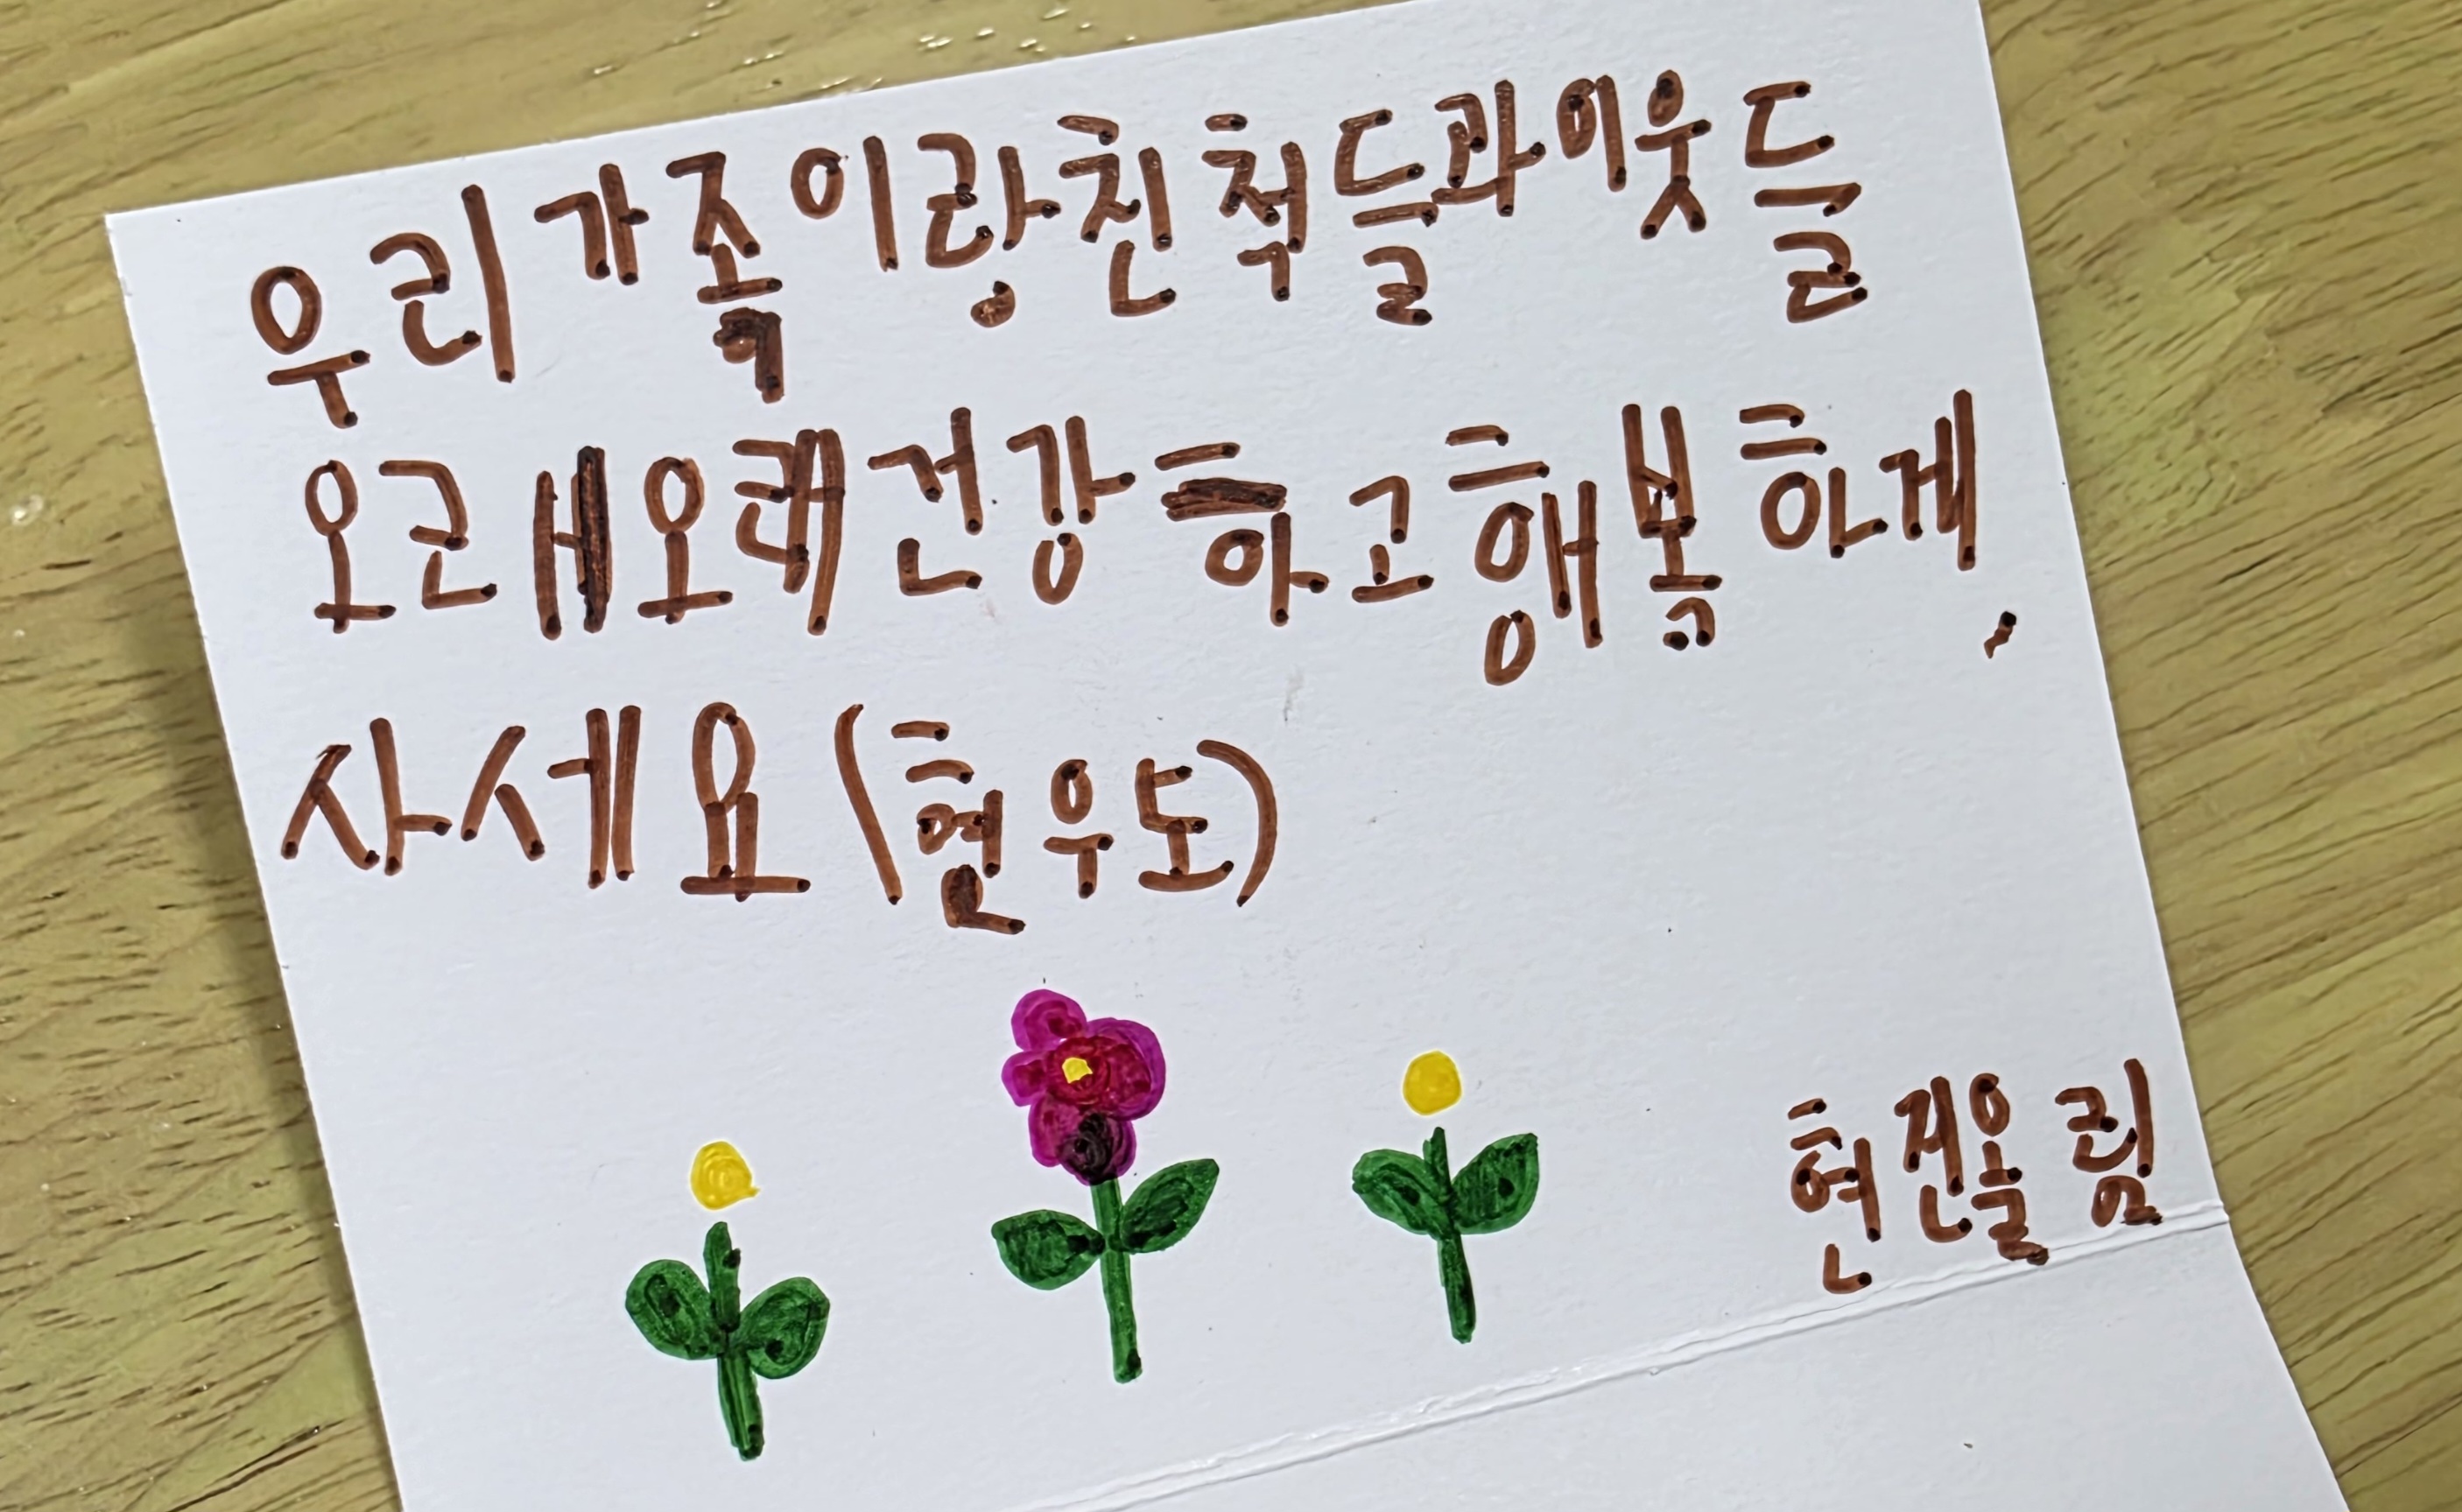 우리가족이랑친척들과이웃들
오래오래건강하고행복하게,
사세요(현우도)
현진올림